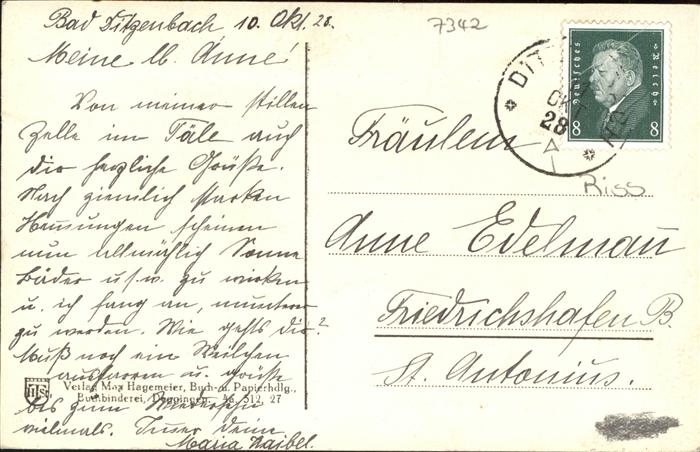 Bad Ditzenbach, 10. Okt. 28.
Meine lb. Änne!
Von meiner stillen
Zelle im Täle auch
dir herzliche Grüße.
Nach ziemlich starken
Hemmungen scheinen
nun allmählich Sonne
Bäder u.s.w. zu wirken
u. ich fang an, munterer
zu werden. Wie gehts dir?
Muß noch ein Weilchen
ausharren u. grüße
bis zum Wiedersehn
vielmals. Immer deine
Maria
Verlag Max Hagemeier, Buch- u. Papierhdlg.,
Buchbinderei, Deggingen. 512, 27
7342
Deutsches Reich
8 8
DITZ
OKT
28
Riss
Fräulein
Anne Edelmann
Friedrichshafen B.
St. Antonius.